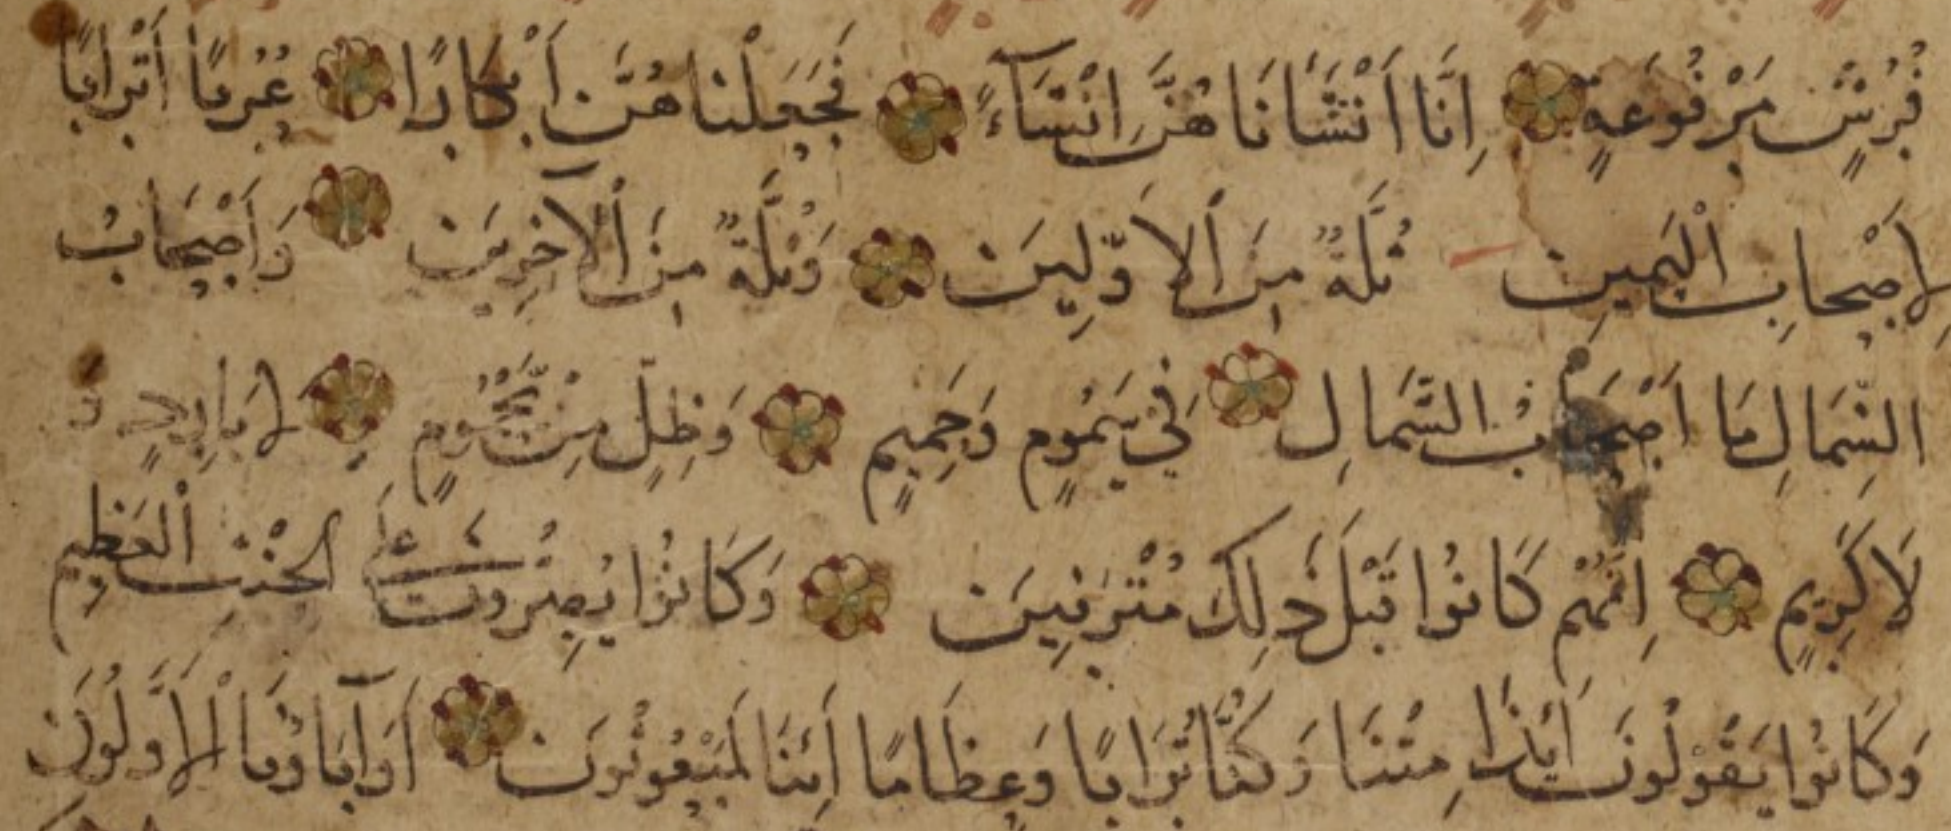 فُرُشٍ مَرْفُوعَةٍ اِنَّا اَنْشَانَاهُنَّ اِنْشَآءً فَجَعَلْنَاهُنَّ اَبْكَارًا عُرُبًا اَتْرَابًا
لِاَصْحَابِ الْيَمِينِ ثُلَّةٌ مِنَ الْاَوَّلِينَ وَثُلَّةٌ مِنَ الْآخِرِينَ وَاَصْحَابُ
الشِّمَالِ مَا اَصْحَابُ الشِّمَالِ فِي سَمُومٍ وَحَمِيمٍ وَظِلٍّ مِنْ يَحْمُومٍ لَا بَارِدٍ وَ
لَا كَرِيمٍ اِنَّهُمْ كَانُوا قَبْلَ ذَلِكَ مُتْرَفِينَ وَكَانُوا يُصِرُّونَ عَلَى الْحِنْثِ الْعَظِيمِ
وَكَانُوا يَقُولُونَ اَئِذَا مِتْنَا وَكُنَّا تُرَابًا وَعِظَامًا اَئِنَّا لَمَبْعُوثُونَ اَوَآبَاؤُنَا الْاَوَّلُونَ